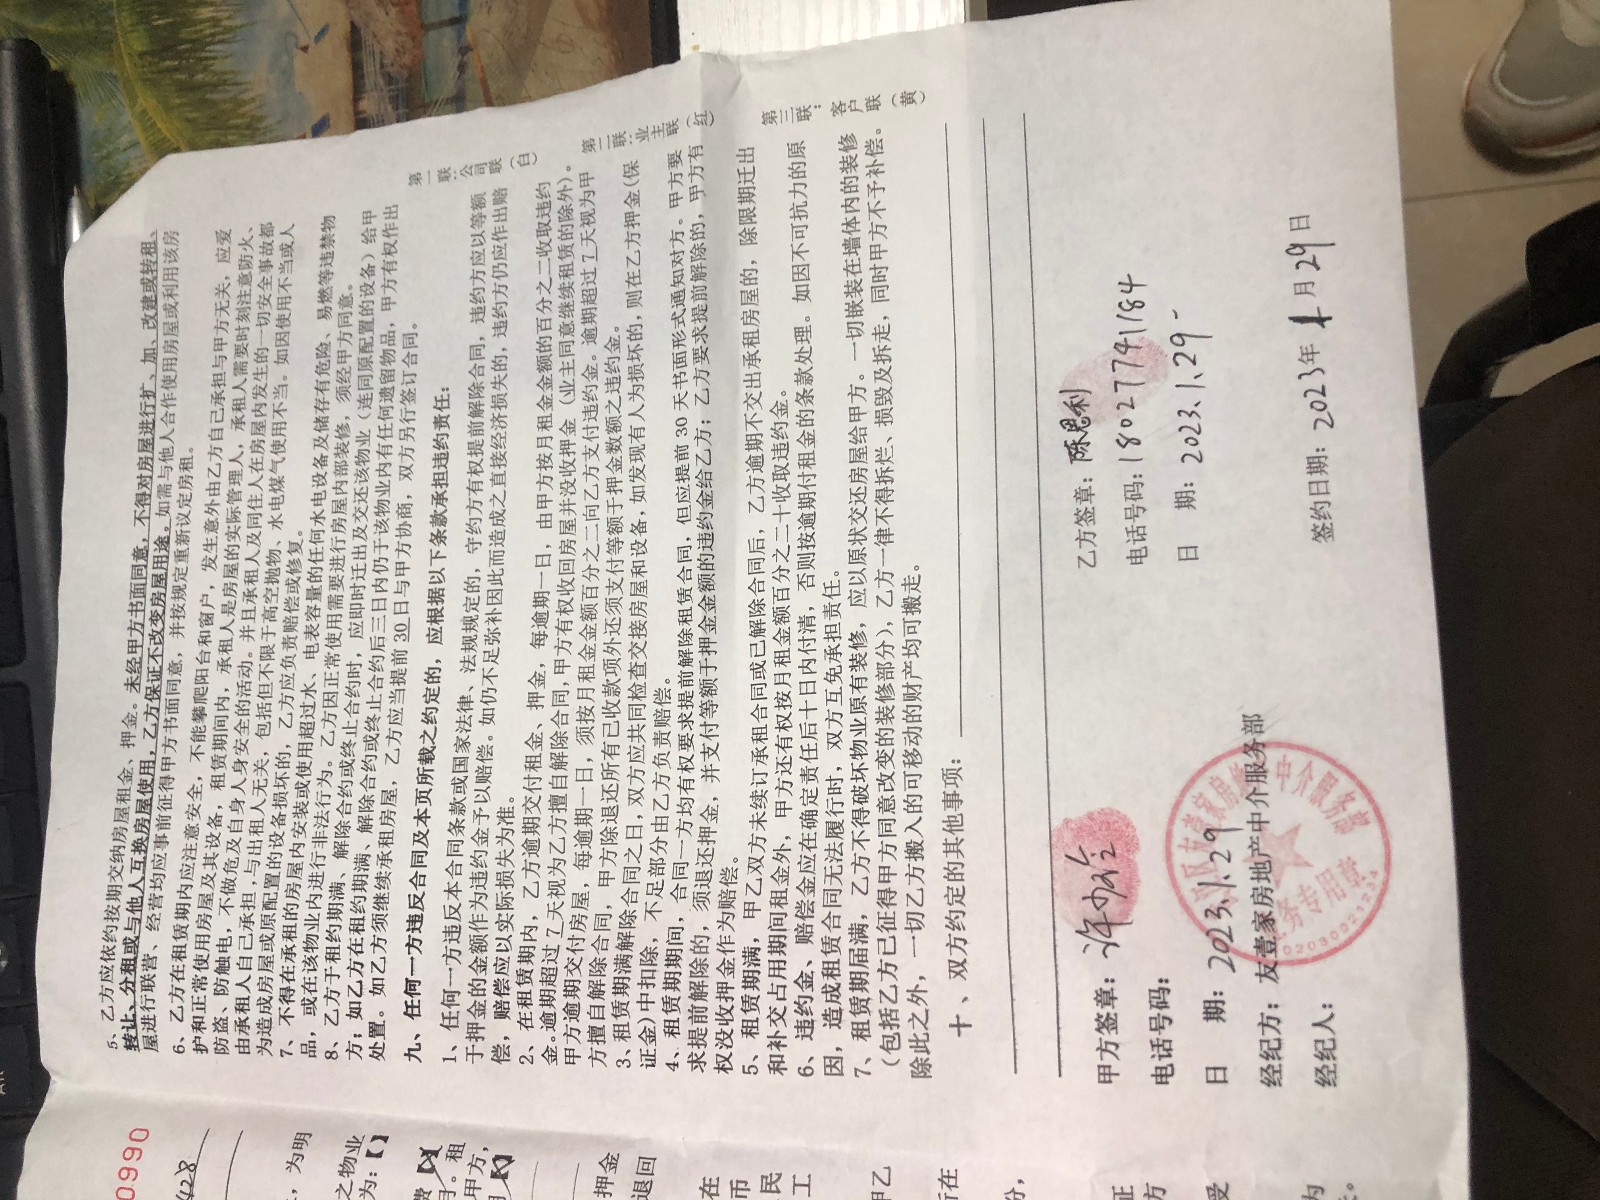 5、乙方应依约按期交纳房屋租金、押金。未经甲方书面同意，不得对房屋进行扩、加、改建或转租、
转让、分租或与他人互换房屋使用，乙方保证不改变房屋用途。如需与他人合作使用房屋或利用该房
屋进行联营、经营均应事前征得甲方书面同意，并按规定重新议定房租。
6、乙方在租赁期内应注意安全，不能攀爬阳台和窗户，发生意外由乙方自己承担与甲方无关，应爱
护和正常使用房屋及其设备，租赁期间内，承租人是房屋的实际管理人，承租人需要时刻注意防火、
防盗、防触电，不做危及自身人身安全的活动。并且承租人及同住人在房屋内发生的一切安全事故都
由承租人自己承担，与出租人无关，包括但不限于高空抛物、水电煤气使用不当。如因使用不当或人
为造成房屋或原配置的设备损坏的，乙方应负责赔偿或修复。
7、不得在承租的房屋内安装或使用超过水、电表容量的任何水电设备及储存有危险、易燃等违禁物
品，或在该物业内进行非法行为。乙方因正常使用需要进行房屋内部装修，须经甲方同意。
8、乙方于租约期满、解除合约或终止合约时，应即时迁出及交还该物业（连同原配置的设备）给甲
方；如乙方在租约期满、解除合约或终止合约后三日内仍于该物业内有任何遗留物品，甲方有权作出
处置。如乙方须继续承租房屋，乙方应当提前 30 日与甲方协商，双方另行签订合同。
九、任何一方违反合同及本页所载之约定的，应根据以下条款承担违约责任：
1、任何一方违反本合同条款或国家法律、法规规定的，守约方有权提前解除合同，违约方应以等额
于押金的金额作为违约金予以赔偿。如仍不足弥补因此而造成之直接经济损失的，违约方仍应作出赔
偿，赔偿应以实际损失为准。
2、在租赁期内，乙方逾期交付租金、押金，每逾期一日，由甲方按月租金金额的百分之二收取违约
金。逾期超过 7 天视为乙方擅自解除合同，甲方有权收回房屋并没收押金（业主同意继续租赁的除外）。
甲方逾期交付房屋，每逾期一日，须按月租金金额百分之二向乙方支付违约金。逾期超过 7 天视为甲
方擅自解除合同，甲方除退还所有已收款项外还须支付等额于押金数额之违约金。
3、租赁期满解除合同之日，双方应共同检查交接房屋和设备，如发现有人为损坏的，则在乙方押金（保
证金）中扣除，不足部分由乙方负责赔偿。
4、租赁期期间，合同一方均有权要求提前解除租赁合同，但应提前 30 天书面形式通知对方。甲方要
求提前解除的，须退还押金，并支付等额于押金金额的违约金给乙方；乙方要求提前解除的，甲方有
权没收押金作为赔偿。
5、租赁期满，甲乙双方未续订承租合同或已解除合同后，乙方逾期不交出承租房屋的，除限期迁出
和补交占用期间租金外，甲方还有权按月租金额百分之二十收取违约金。
6、违约金、赔偿金应在确定责任后十日内付清，否则按逾期付租金的条款处理。如因不可抗力的原
因，造成租赁合同无法履行时，双方互免承担责任。
7、租赁期届满，乙方不得破坏物业原有装修，应以原状交还房屋给甲方。一切嵌装在墙体内的装修
（包括乙方已征得甲方同意改变的装修部分），乙方一律不得拆烂、损毁及拆走，同时甲方不予补偿。
除此之外，一切乙方搬入的可移动的财产均可搬走。
十、双方约定的其他事项：
甲方签章：
乙方签章：陈恩利
电话号码：
电话号码：18027741184
日 期：2023.1.29
日 期：2023.1.29
经纪方：友壹家房地产中介服务部
经纪人：
签约日期：2023年1月29日
第一联：公司联（白）
第二联：业主联（红）
第三联：客户联（黄）
中介服务部
业务专用章
0990
428
，为明
之物业
为：【】
租
甲方，
押金
退回
在
币
民
工
甲乙
在
份，